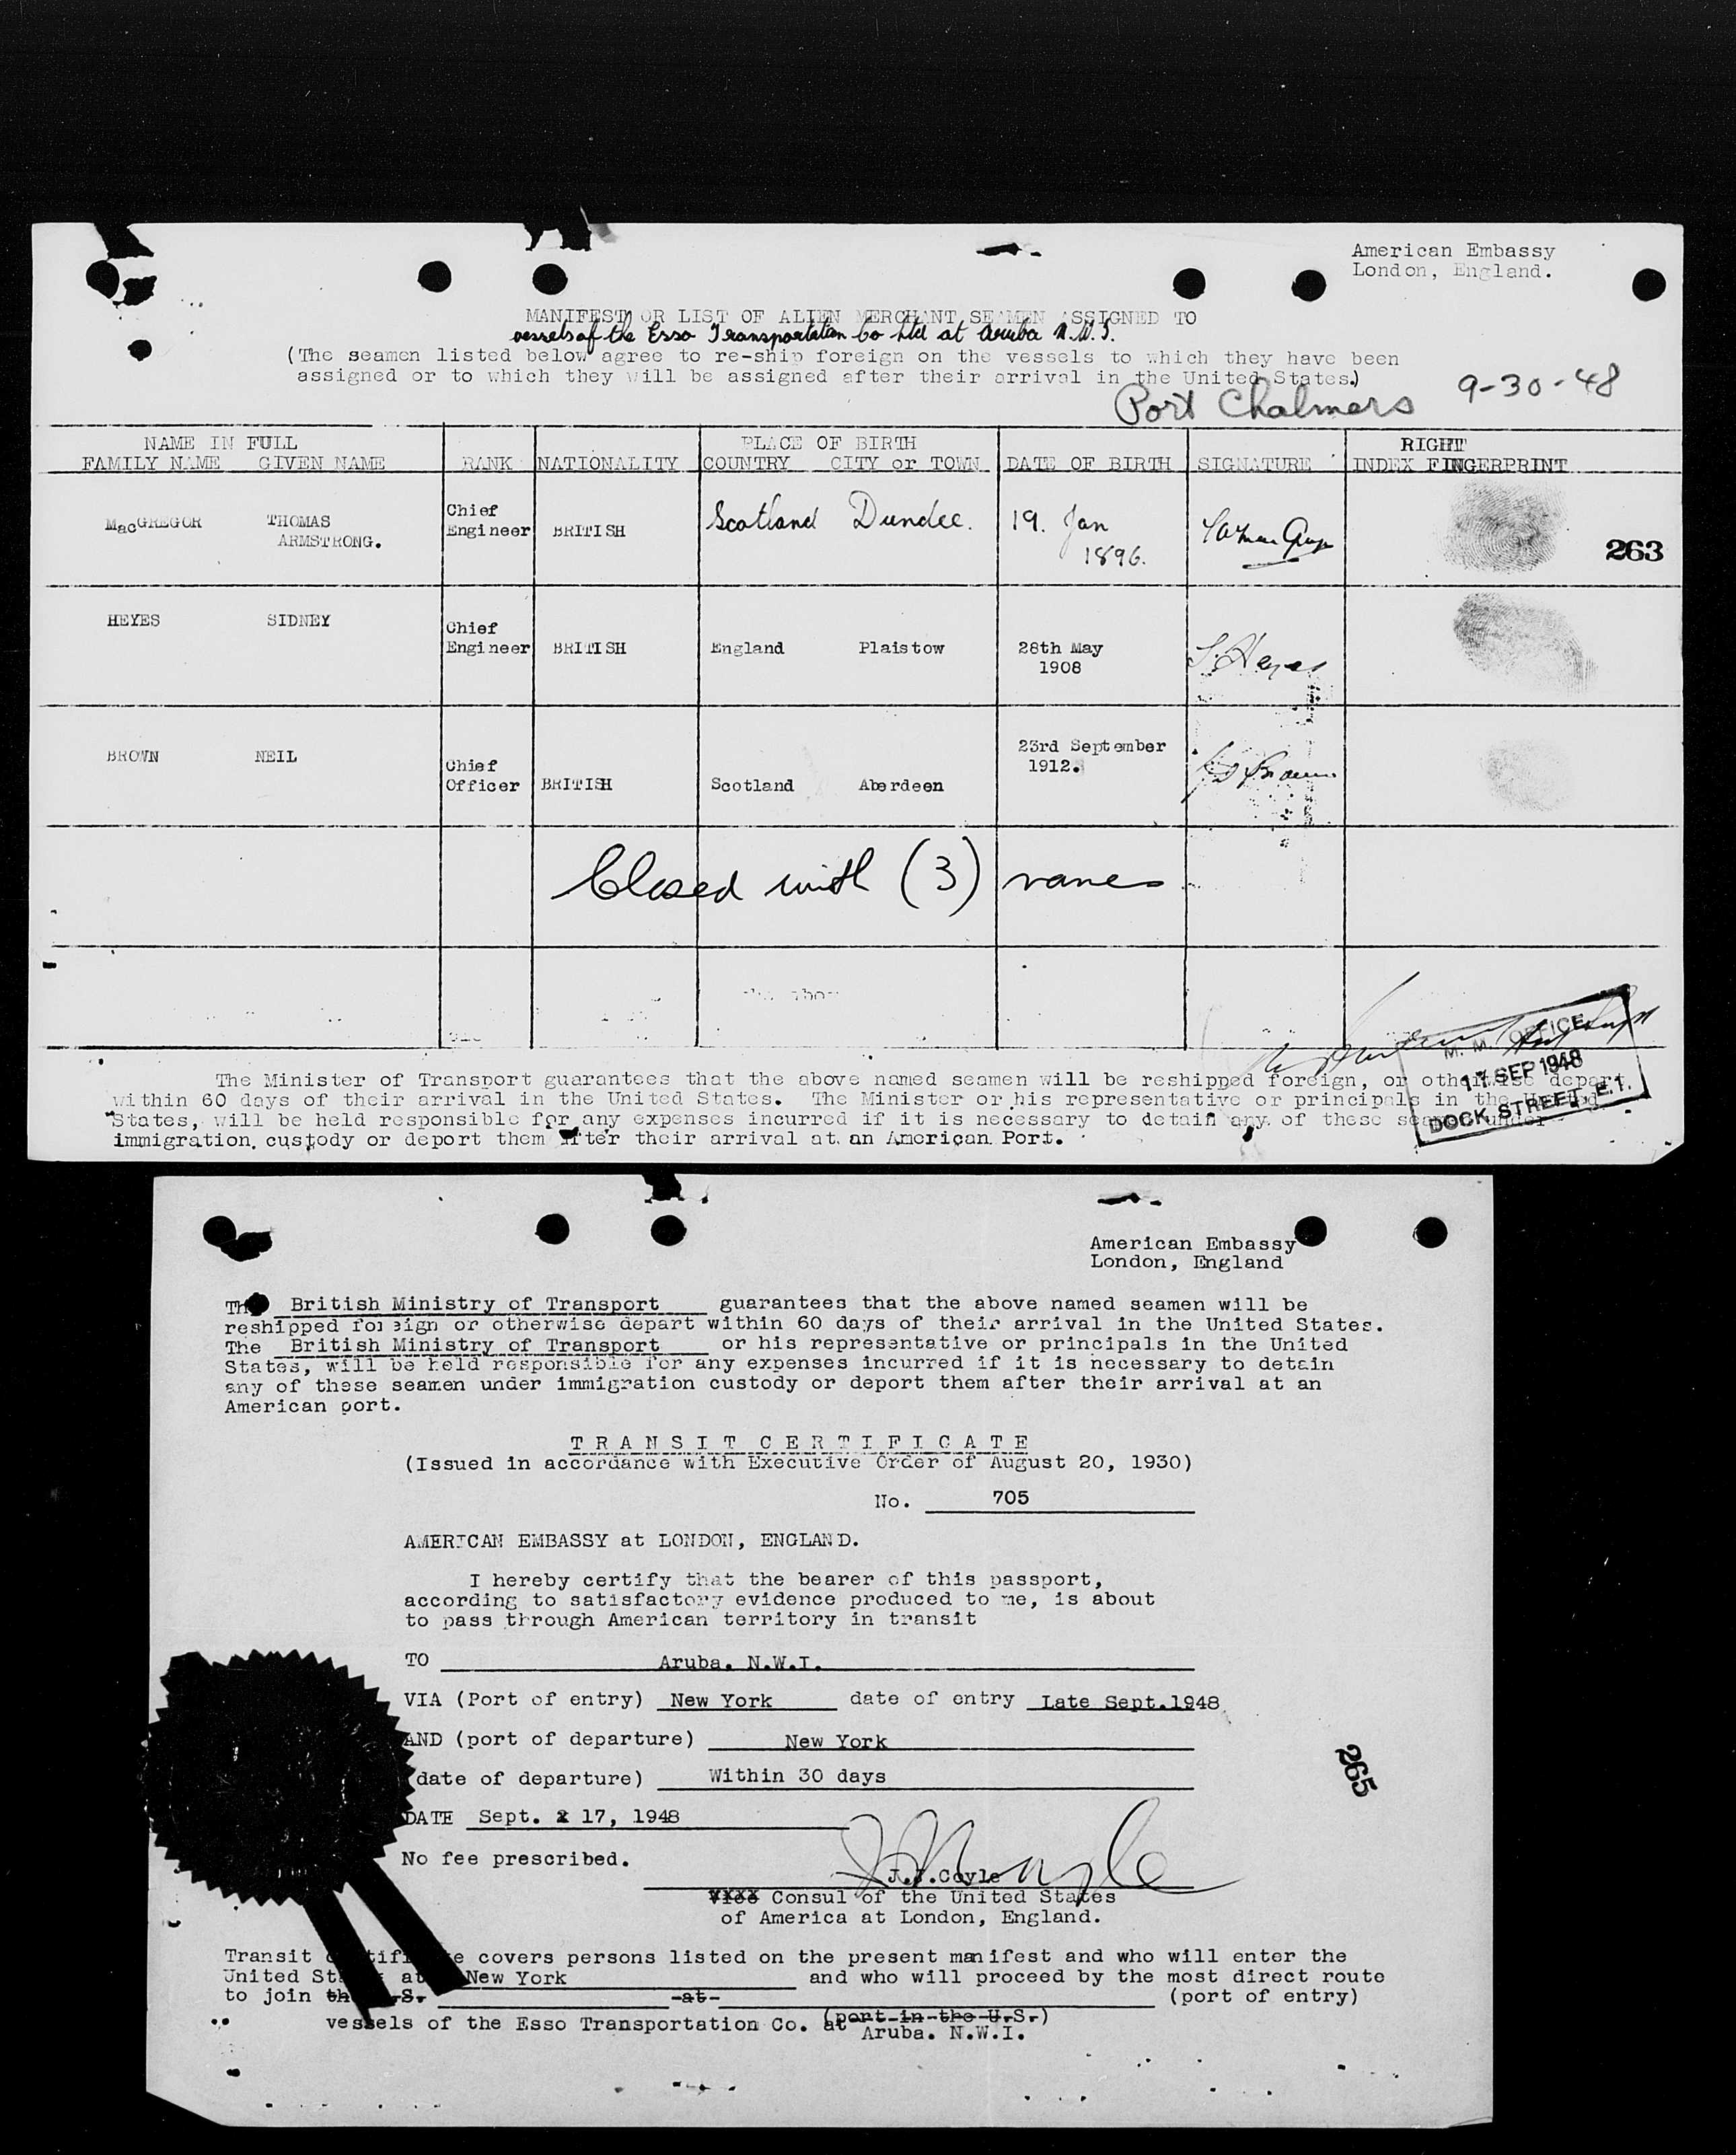 American Embassy
London, England.
MANIFEST OR LIST OF ALIEN MERCHANT SEAMEN ASSIGNED TO
vessels of the Esso Transportation Co Ltd at Aruba N.W.I.
(The seamen listed below agree to re-ship foreign on the vessels to which they have been
assigned or to which they will be assigned after their arrival in the United States.)
Port Chalmers 9-30-48
NAME IN FULL PLACE OF BIRTH RIGHT
FAMILY NAME GIVEN NAME RANK NATIONALITY COUNTRY CITY or TOWN DATE OF BIRTH SIGNATURE INDEX FINGERPRINT
MacGREGOR THOMAS ARMSTRONG. Chief Engineer BRITISH Scotland Dundee. 19. Jan 1896.
263
HEYES SIDNEY Chief Engineer BRITISH England Plaistow 28th May 1908 S. Heyes
BROWN NEIL Chief Officer BRITISH Scotland Aberdeen 23rd September 1912. Brown
Closed with (3) names
M. M. OFFICE
17 SEP 1948
DOCK STREET, E.1.
The Minister of Transport guarantees that the above named seamen will be reshipped foreign, or otherwise depart
within 60 days of their arrival in the United States. The Minister or his representative or principals in the United
States, will be held responsible for any expenses incurred if it is necessary to detain any of these seamen under
immigration custody or deport them after their arrival at an American Port.
American Embassy
London, England
The British Ministry of Transport guarantees that the above named seamen will be
reshipped foreign or otherwise depart within 60 days of their arrival in the United States.
The British Ministry of Transport or his representative or principals in the United
States, will be held responsible for any expenses incurred if it is necessary to detain
any of these seamen under immigration custody or deport them after their arrival at an
American port.
TRANSIT CERTIFICATE
(Issued in accordance with Executive Order of August 20, 1930)
No. 705
AMERICAN EMBASSY at LONDON, ENGLAND.
I hereby certify that the bearer of this passport,
according to satisfactory evidence produced to me, is about
to pass through American territory in transit
TO Aruba. N.W.I.
VIA (Port of entry) New York date of entry Late Sept.1948
AND (port of departure) New York
(date of departure) Within 30 days
265
DATE Sept. 17, 1948
No fee prescribed.
J.J.Coyle
Vice Consul of the United States
of America at London, England.
Transit Certificate covers persons listed on the present manifest and who will enter the
United States at New York and who will proceed by the most direct route
to join the S.S. -at- (port of entry)
(port in the U.S.)
vessels of the Esso Transportation Co. at Aruba. N.W.I.